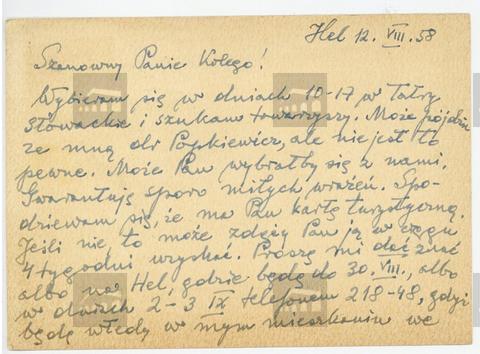 Hel 12. VIII. 58
Szanowny Panie Kolego!
Wybieram się w dniach 10-17 w Tatry
Słowackie i szukam towarzyszy. Może pójdzie
ze mną dr Popkiewicz, ale nie jest to
pewne. Może Pan wybrałby się z nami.
Gwarantuję sporo miłych wrażeń. Spo-
dziewam się, że ma Pan kartę turystyczną.
Jeśli nie, to może zdąży Pan ją w ciągu
4 tygodni uzyskać. Proszę mi dać znać
albo na Hel, gdzie będę do 30. VIII., albo
w dniach 2-3 IX telefonem 218-48, gdyż
będę wtedy w mym mieszkaniu we